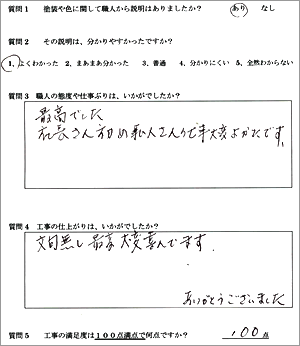 質問1 塗装や色に関して職人から説明はありましたか? あり なし
質問2 その説明は、分かりやすかったですか?
1、よくわかった 2、まあまあ分かった 3、普通 4、分かりにくい 5、全然わからない
質問3 職人の態度や仕事ぶりは、いかがでしたか?
最高でした
社長さん初め職人さん 大変よかたです。
質問4 工事の仕上がりは、いかがでしたか?
文句無し最高大変喜んでます.
ありがとうございました
質問5 工事の満足度は100点満点で何点ですか? 100点